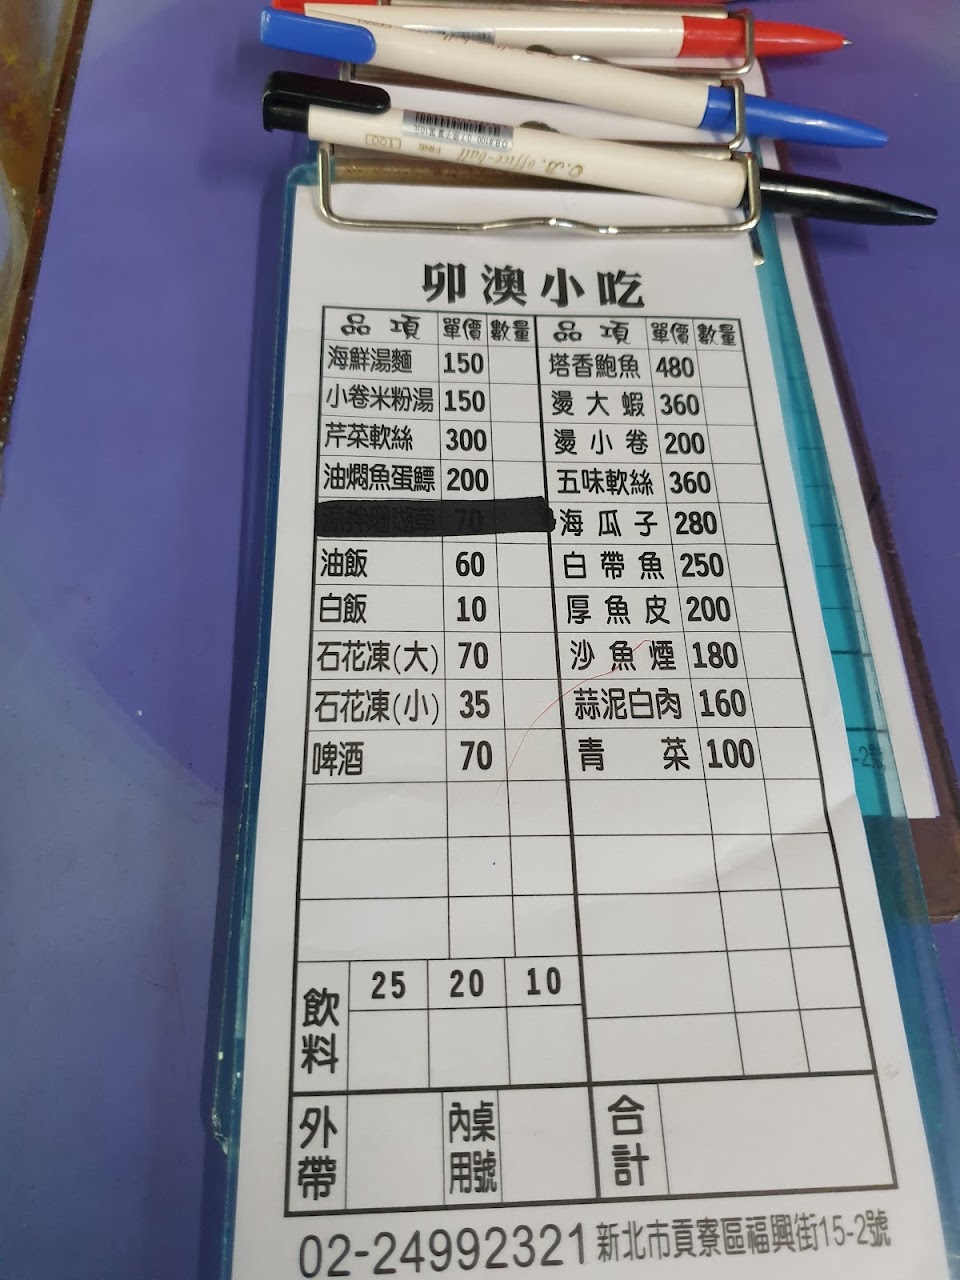 O.B. office-ball
FINE
100
卯澳小吃
品項 單價 數量 品項 單價 數量
海鮮湯麵 150 塔香鮑魚 480
小卷米粉湯 150 燙大蝦 360
芹菜軟絲 300 燙小卷 200
油燜魚蛋鰾 200 五味軟絲 360
涼拌珊瑚草 70 海瓜子 280
油飯 60 白帶魚 250
白飯 10 厚魚皮 200
石花凍(大) 70 沙魚煙 180
石花凍(小) 35 蒜泥白肉 160
啤酒 70 青菜 100
飲料 25 20 10
外帶 內用 桌號 合計
02-24992321 新北市貢寮區福興街15-2號
-2號